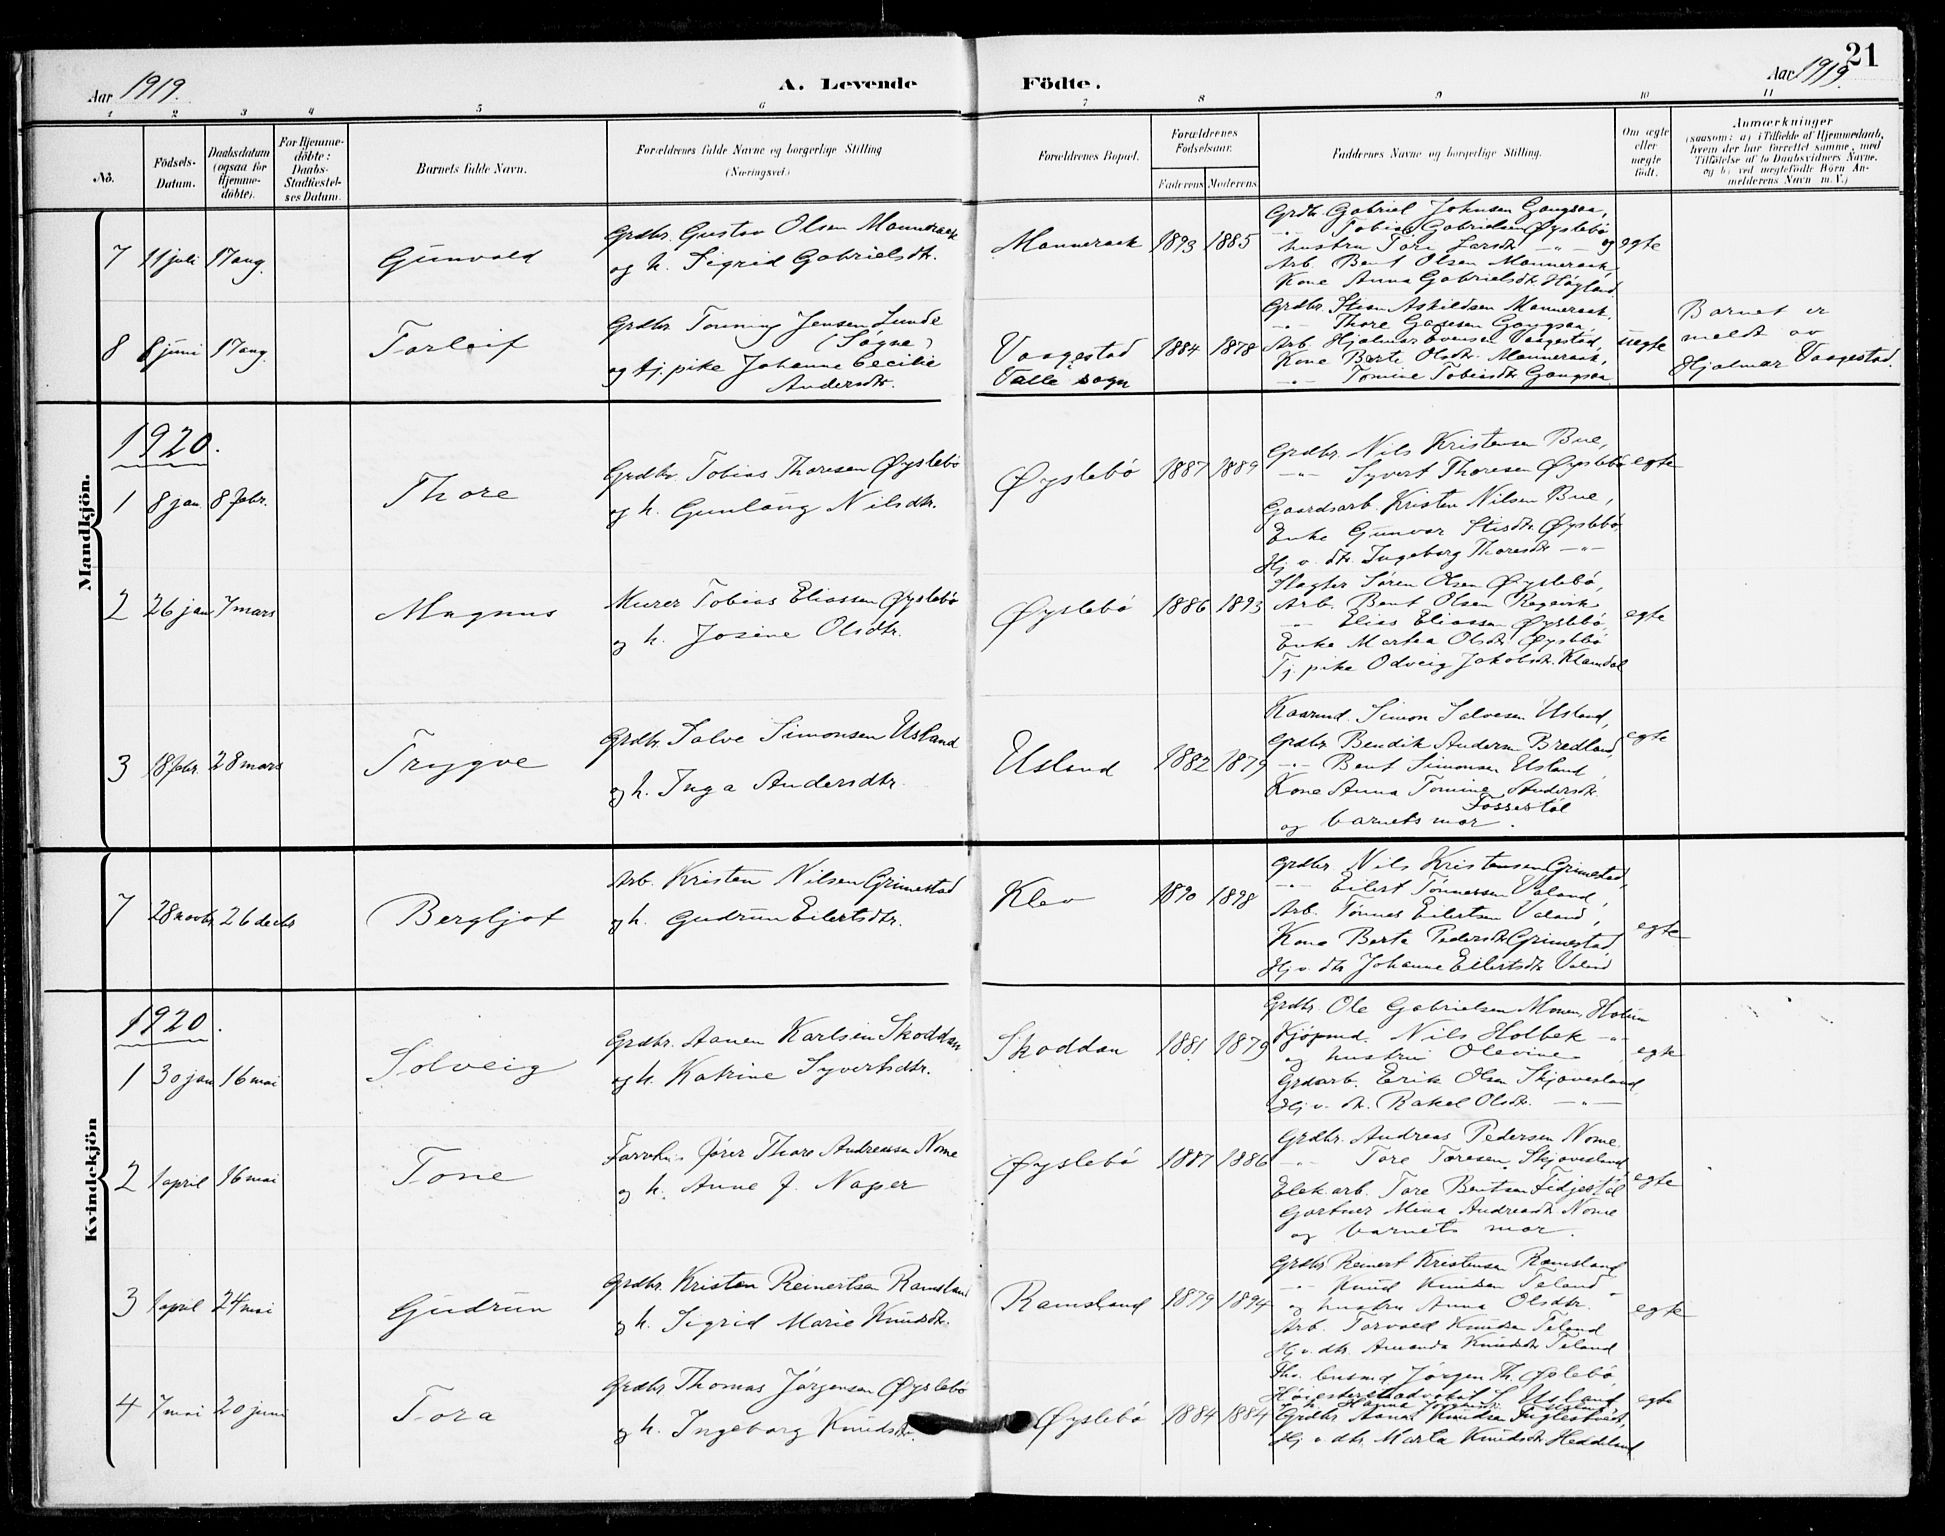 21
Aar 1919. A. Levende Födte. Aar 1919.
1 2 3 4 5 6 7 8 9 10 11
No.
Födsels-
Datum.
Daabsdatum
(ogsaa for
Hjemme-
döbte).
For Hjemme-
döbte:
Daabs-
Stadfæstel-
ses Datum.
Barnets fulde Navn.
Forældrenes fulde Navne og borgerlige Stilling
(Næringsvei.)
Forældrenes Bopæl.
Forældrenes
Födselsaar.
Faderens Moderens
Faddernes Navne og borgerlige Stilling.
Om ægte
eller
uægte
födt.
Anmærkninger
(saasom: a) i Tilfælde af Hjemmedaab,
hvem der har forrettet samme, med
Tilföielse af to Daabsvidners Navne,
og b) ved uægtefödte Börn An-
melderens Navn m. V.)
Mandkjön.
7 11 juli 17 aug. Gunvald
Grdbr. Gustav Olsen Manneraak
og h. Sigrid Gabrielsdtr.
Manneraak 1893 1885
Grdbr. Gabriel Johnsen Gangsaa,
-"- Tobias Gabrielsen Øyslebø og
hustru Tore Larsdtr -"-
Arb. Bent Olsen Manneraak,
Kone Anna Gabrielsdtr. Høyland.
egte
8 8 juni 17 aug. Torleif
Grdbr. Tønning Jensen Lunde
(Søgne)
og tj. pike Johanne Cecilie
Andersdtr.
Vaagestad
Valle sogn
1884 1878
Grdbr. Sten Askildsen Manneraak,
-"- Thore Gangsaa,
Arb. Hjalmar Evensen Vaagestad,
Kone Berte Olsdtr. Manneraak,
-"- Tomine Tobiasdtr Gangsaa
uegte
Barnet er
meldt av
Hjalmar Vaagestad.
1920.
1 8 jan. 8 febr. Thore
Grdbr. Tobias Thoresen Øyslebø
og h. Gunlaug Nilsdtr.
Øyslebø 1887 1889
Grdbr. Nils Kristensen Bue,
-"- Syvert Thoresen Øyslebø
Gaardsarb. Kristen Nilsen Bue,
Enke Gunvor Stisdtr. Øyslebø,
Hj. v. dtr. Ingeborg Thoresdtr -"-
egte
2 26 jan 7 mars Magnus
Murer Tobias Eliassen Øyslebø
og h. Josine Olsdtr.
Øyslebø 1886 1893
Slagter Søren Olsen Øyslebø,
Arb. Bent Olsen Røgevik,
-"- Elias Eliassen Øyslebø,
Enke Martha Olsdtr Øyslebø
Tj. pike Odveig Jakobsdtr. Klemdal
egte
3 18 febr. 28 mars Trygve
Grdbr. Salve Simonsen Usland
og h. Inga Andersdtr.
Usland 1882 1879
Kaarmd. Simon Salvesen Usland,
Grdbr. Bendik Andersen Bredland,
-"- Bent Simonsen Usland,
Kone Anna Tomine Andersdtr.
Fossestøl
og barnets mor.
egte
Kvindekjön
7 28 novbr. 26 decbr Bergljot
Arb. Kristen Nilsen Grimestad
og h. Gudrun Eilertsdtr.
Klev 1890 1898
Grdbr. Nils Kristensen Grimestad,
-"- Eilert Tønnessen Valand,
Arb. Tønnes Eilertsen Valand,
Kone Berte Pedersdtr. Grimestad,
Hj. v. dtr. Johanne Eilertsdtr. Valand
egte
1920.
1 30 jan 16 mai Solveig
Grdbr. Aanen Karlsen Skoddan
og h. Katrine Syvertsdtr.
Skoddan 1881 1879
Grdbr. Ole Gabrielsen Monen, Holum
Kjøpmd. Nils Holbek -"-
og hustru Olevine
Grdsarb. Erik Olsen Skjævesland,
Hj. v. dtr. Rakel Olsdtr. -"-
egte
2 1 april 16 mai Tone
fører Thore Andreassen Nome
og h. Anne J. Naper
Øyslebø 1887 1886
Grdbr. Andreas Pedersen Nome,
-"- Tore Toresen Skjævesland
Elek. arb. Tore Bentsen Fidjestøl
Gartner Mina Andreasdtr Nome
og barnets mor.
egte
3 1 april 24 mai Gudrun
Grdbr. Kristen Reinertsen Ramsland
og h. Sigrid Marie Knudsdtr.
Ramsland 1879 1894
Grdbr Reinert Kristensen Ramsland
-"- Knud Knudsen Teland
og hustru Anna Olsdtr.
Arb. Torvald Knudsen Teland
Hj. v. dtr. Amanda Knudsdtr Teland
egte
4 7 mai 20 juni Tora
Grdbr. Thomas Jørgensen Øyslebø
og h. Ingeborg Knudsdtr.
Øyslebø 1884 1884
Jørgen Th. Øyslebø
Høiesteretsadvokat S. Usland,
Grdbr Aanen Knudsen
Hj. v. dtr. Marta Knudsdtr Heddeland
egte